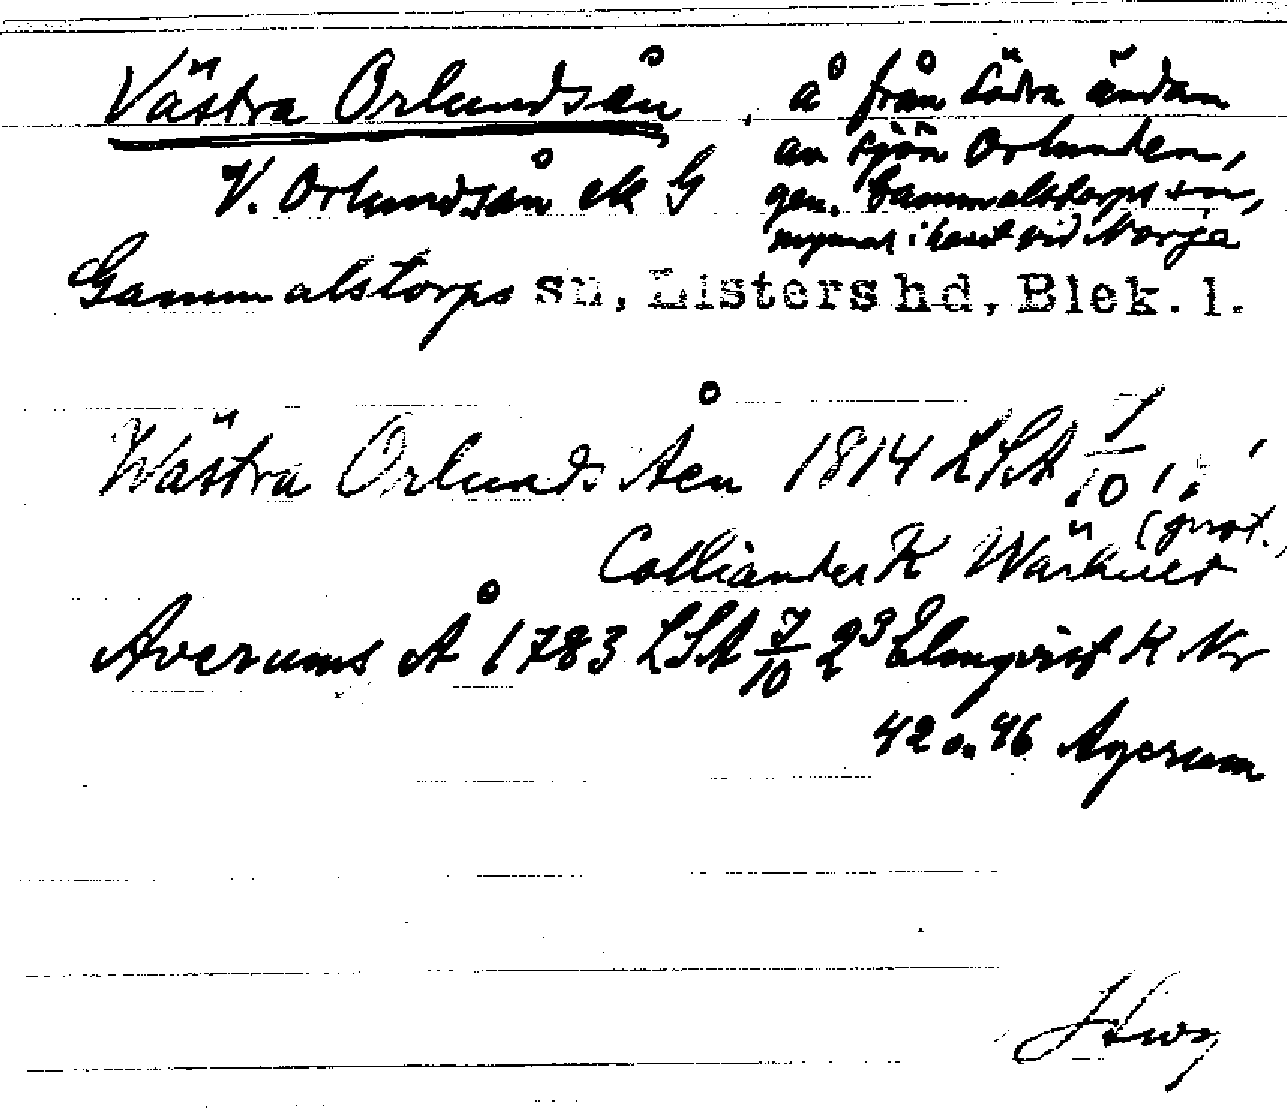 Västra Orlundsån, å från södra ändan
av sjön Orlunden,
V. Orlundsån ek G gen. Gammalstorps sn,
mynnar i havet vid Norje
Gammalstorps sn, Listers hd, Blek. l.
Wästra Orlunds Åen 1814 LSA 7/10 1,
Collianders K Wäshult (prot.
Averums Å 1783 LSA 7/10 23 Elmqvist K Nr
42 o. 46 Agerum